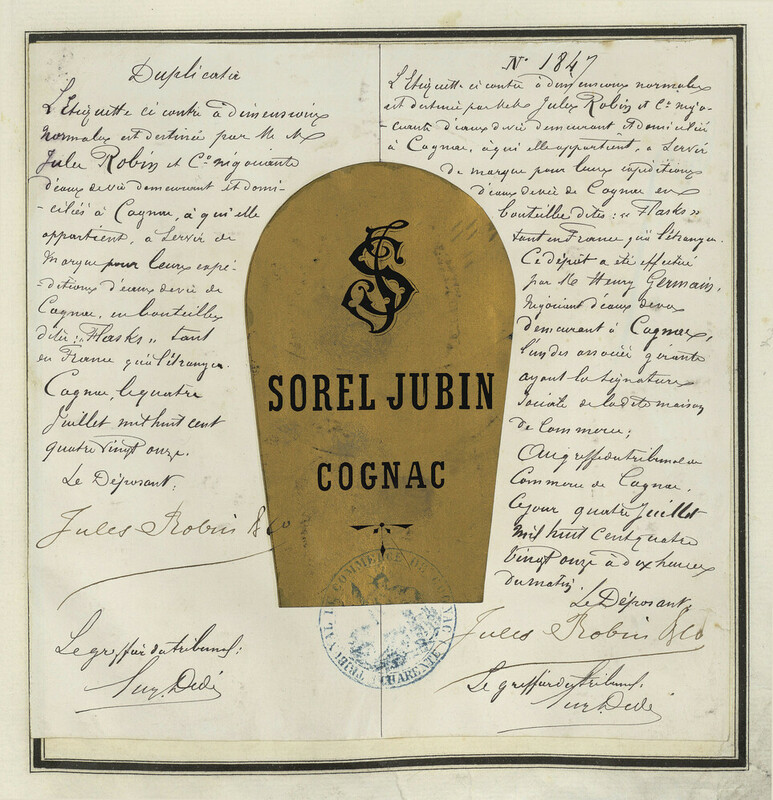 Duplicata
L'Etiquette ci contre à dimensions
normales est destinée par M M
Jules Robin et Co négociants
d'eaux de vie demeurant et domi-
-ciliés à Cognac, à qui elle
appartient, à servir de
marque pour leurs expé-
ditions d'eaux de vie de
Cognac, en bouteilles
dites: "Flasks" tant
en France qu'à l'étranger.
Cognac, le quatre
Juillet mil huit cent
quatre vingt onze.
Le Déposant:
Jules Robin & Co
Le greffier du tribunal:
No 1847
L'Etiquette ci contre à dimensions normales
est destinée par M M Jules Robin et Co négo-
ciants d'eaux de vie demeurant et domiciliés
à Cognac, à qui elle appartient, à servir
de marque pour leurs expéditions
d'eaux de vie de Cognac en
bouteilles dites: "Flasks"
tant en France qu'à l'étranger.
Ce dépôt a été effectué
par M Henry Germain,
négociant d'eaux de vie
demeurant à Cognac,
l'un des associés gérants
ayant la signature
sociale de la dite maison
de Commerce;
Au greffe du tribunal de
Commerce de Cognac,
ce jour quatre Juillet
mil huit cent quatre
vingt onze à dix heures
du matin.
Le Déposant,
Jules Robin & Co
Le greffier du tribunal,
SJ
SOREL JUBIN
COGNAC
TRIBUNAL DE COMMERCE DE COGNAC
(CHARENTE)